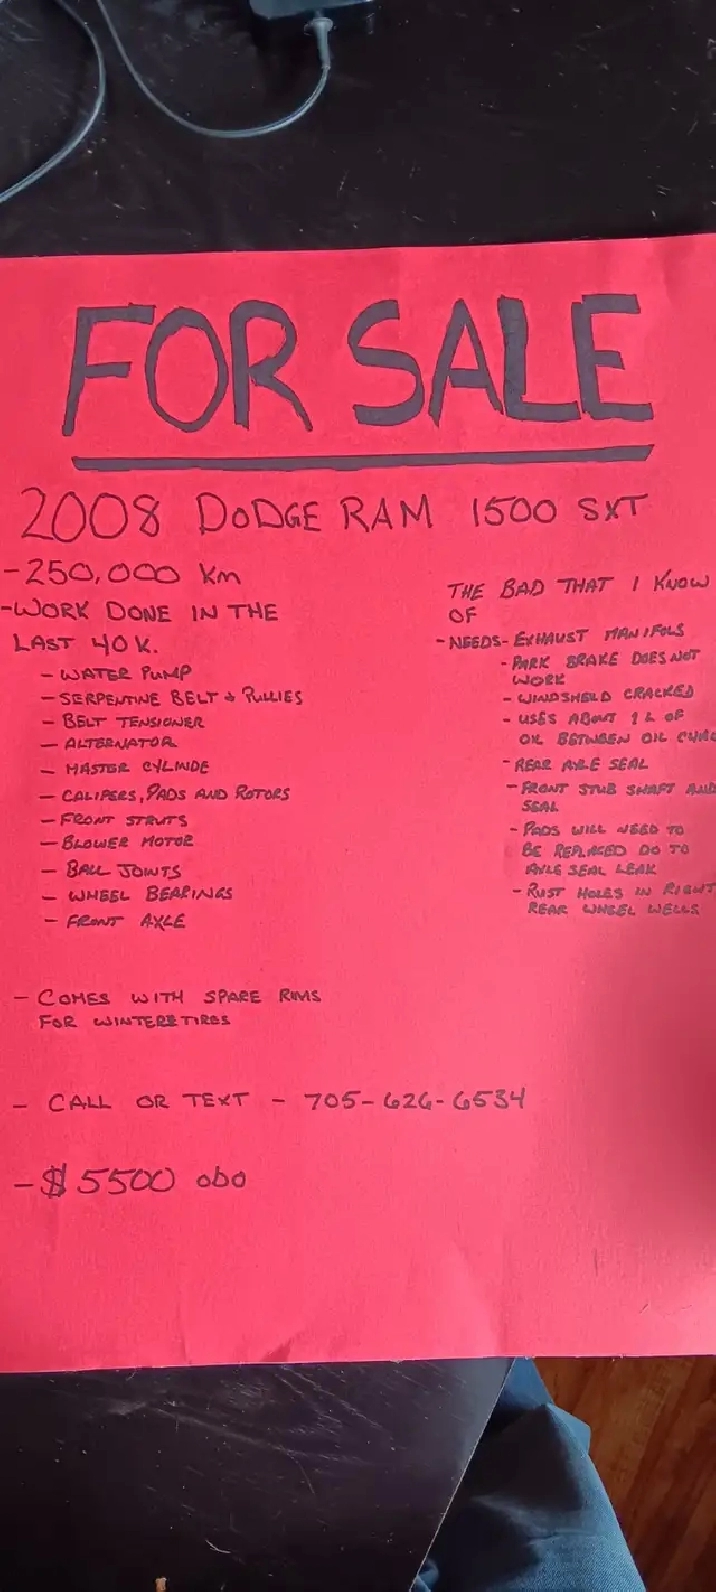 FOR SALE
2008 DODGE RAM 1500 SXT
-250,000 Km
-WORK DONE IN THE
LAST 40K.
- WATER PUMP
- SERPENTINE BELT + PULLIES
- BELT TENSIONER
- ALTERNATOR
- MASTER CYLINDE
- CALIPERS, PADS AND ROTORS
- FRONT STRUTS
- BLOWER MOTOR
- BALL JOINTS
- WHEEL BEARINGS
- FRONT AXLE
THE BAD THAT I KNOW
OF
-NEEDS- EXHAUST MANIFOLS
- PARK BRAKE DOES NOT
WORK
- WINDSHEILD CRACKED
- USES ABOUT 1 L OF
OIL BETWEEN OIL CHAG
- REAR AXLE SEAL
- FRONT STUB SHAFT AND
SEAL
- PADS WILL NEED TO
BE REPLACED DO TO
AXLE SEAL LEAK
- RUST HOLES IN RIGHT
REAR WHEEL WELLS
- COMES WITH SPARE RIMS
FOR WINTER TIRES
- CALL OR TEXT - 705-626-6534
-$5500 obo